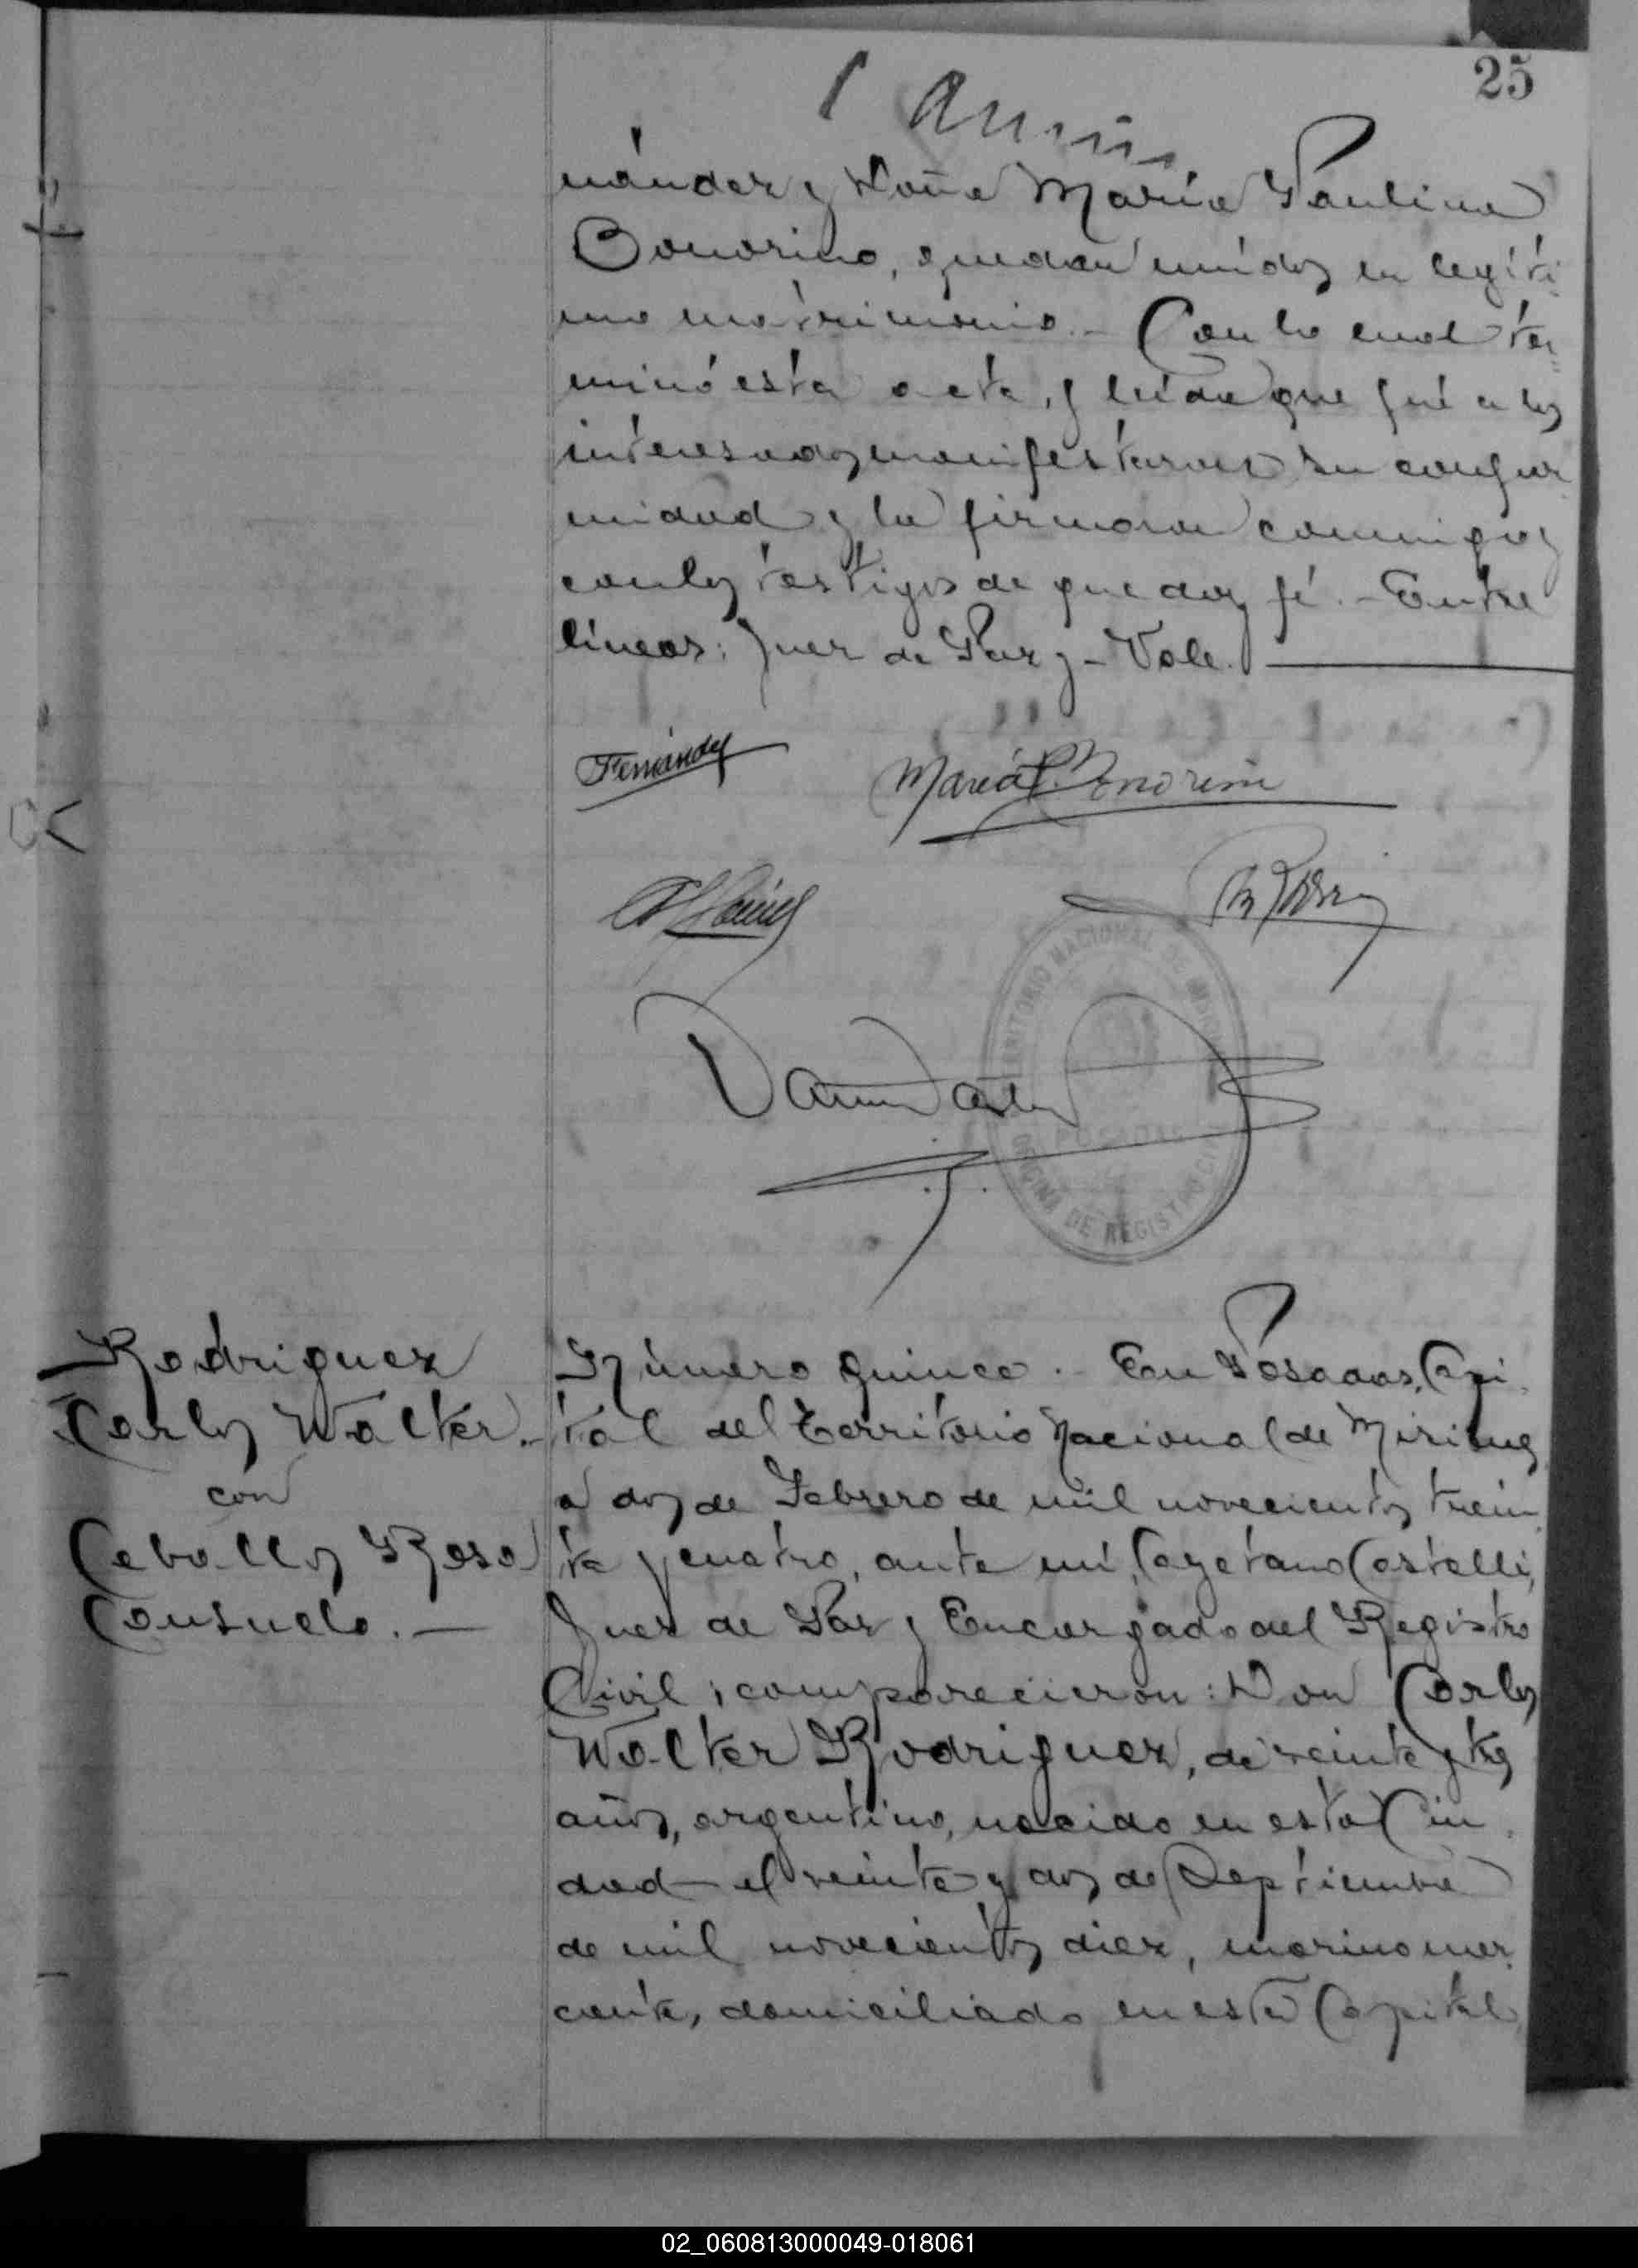 25
nández y Doña María Paulina
Bonorino, quedan unidos en legíti
mo matrimonio.- Con lo cual ter=
minó esta acta, y leída que fué a los
interesados manifestaron su confor
midad y la firmaron conmigo y
con los testigos de que doy fé.- Entre
líneas: Juez de Paz y - Vale.
Fernández
María P. Bonorino
TERRITORIO NACIONAL DE MISIONES
POSADAS
OFICINA DE REGISTRO CIVIL
Rodriguez
Carlos Walter.-
con
Ceballos Rosa
Consuelo.-
Número quince.- En Posadas, Capi
tal del Territorio Nacional de Misiones
a dos de Febrero de mil novecientos trein
ta y cuatro, ante mí, Cayetano Castelli,
Juez de Paz y Encargado del Registro
Civil, comparecieron: Don Carlos
Walter Rodriguez, de veinte y tres
años, argentino, nacido en esta Ciu
dad el veinte y dos de Septiembre
de mil novecientos diez, marino mer
cante, domiciliado en esta Capital,
02_060813000049-018061